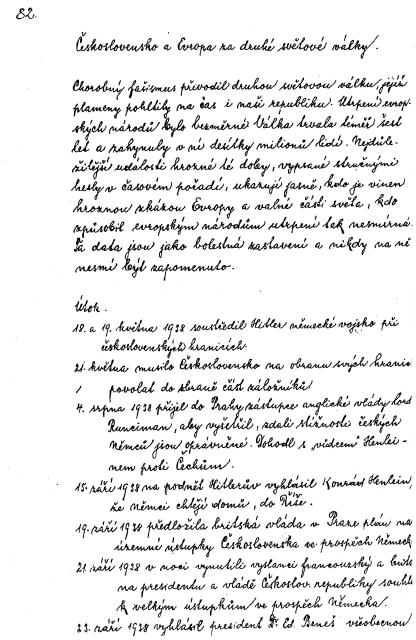 82.
Československo a Evropa za druhé světové války.
Chorobný fašismus převodil druhou světovou válku, jejíž
plameny pohltily na čas i naši republiku. Utrpení evrop-
ských národů bylo bezměrné. Válka trvala téměř šest
let a zahynuly v ní desítky milionů lidí. Nejdůle-
žitější události hrozné té doby, vypsané stručnými
hesly v časovém pořadí, ukazují jasně, kdo je vinen
hroznou zkázou Evropy a valné části světa, kdo
způsobil evropským národům utrpení tak nesmírná.
Ta data jsou jako bolestná zastavení a nikdy na ně
nesmí být zapomenuto.
Útok.
18. a 19. května 1938 soustředil Hitler německé vojsko při
československých hranicích.
21. května musilo Československo na obranu svých hranic
povolat do zbraně část záložníků.
4. srpna 1938 přijel do Prahy zástupce anglické vlády lord
Runciman, aby vyšetřil, zdali stížnosti českých
Němců jsou oprávněné. Dohodl s „vůdcem" Henlei-
nem proti Čechům.
15. září 1938 na podnět Hitlerův vyhlásil Konrád Henlein,
že němci chtějí domů, do Říše.
19. září 1938 předložila britská vláda v Praze plán na
územní ústupky Československa ve prospěch Německ
21. září 1938 v noci vynutili vyslanci francouzský a brits
na presidentu a vládě Českoslov. republiky souhla
k velkým ústupkům ve prospěch Německa.
23. září 1938 vyhlásil president Dr. Ed. Beneš všeobecnou